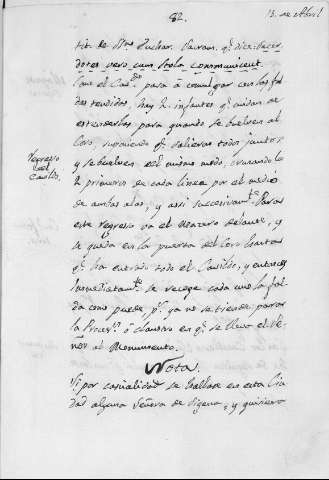 82.
13. de Abril
tit. de Stmo Euchar. Sacram. qe. dice: Sacer-
dotes vero cum stola communicent.
Que el Cavdo. pasa á comulgar con las fal-
das tendidas, hay 4 infantes qe. cuidan de
estenderlas para quando se buelven al
Coro, suponiendo qe. salieron todos juntos,
y se buelven del mismo modo, cruzando los
2 primeros de cada linea por el medio
de ambas alas; y assi succesivamte. Para
este regreso va el Macero delante, y
se queda en la puerta del Coro hasta
qe. ha entrado todo el Cavildo, y entonces
inmediatamte. se recoge cada uno la fal-
da como puede, pr. ya no se tiende, para
la Procesn. ó claustro en qe. se lleva el Se-
ñor al Monumento.
Regreso
del
Cavildo.
Nota.
Si por casualidad se hallase en esta Ciu-
dad alguna Señora de Sigena, y quisiera